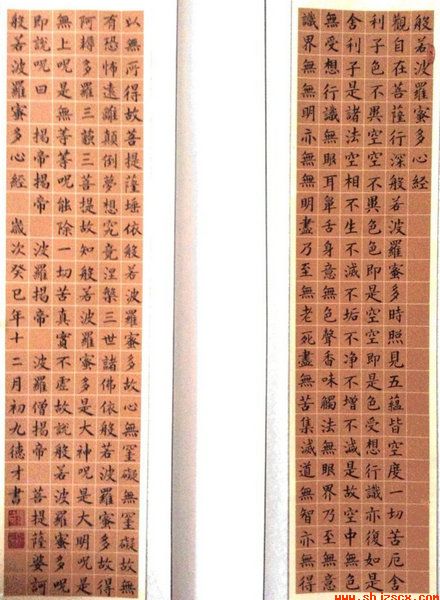 般若波羅蜜多心經
觀自在菩薩行深般若波羅蜜多時照見五蘊皆空度一切苦厄舍
利子色不異空空不異色色即是空空即是色受想行識亦復如是
舍利子是諸法空相不生不滅不垢不净不增不減是故空中無色
無受想行識無眼耳鼻舌身意無色聲香味觸法無眼界乃至無意
識界無無明亦無無明盡乃至無老死盡無苦集滅道無智亦無得
以無所得故菩提薩埵依般若波羅蜜多故心無罣礙無罣礙故無
有恐怖遠離顛倒夢想究竟涅槃三世諸佛依般若波羅蜜多故得
阿耨多羅三藐三菩提故知般若波羅蜜多是大神呪是大明呪是
無上呪是無等等呪能除一切苦真實不虛故說般若波羅蜜多呪
即說呪曰 揭帝揭帝 波羅揭帝 波羅僧揭帝 菩提薩婆訶
般若波羅蜜多心經 歲次癸巳年十二月初九德才書
www.shjzscx.com